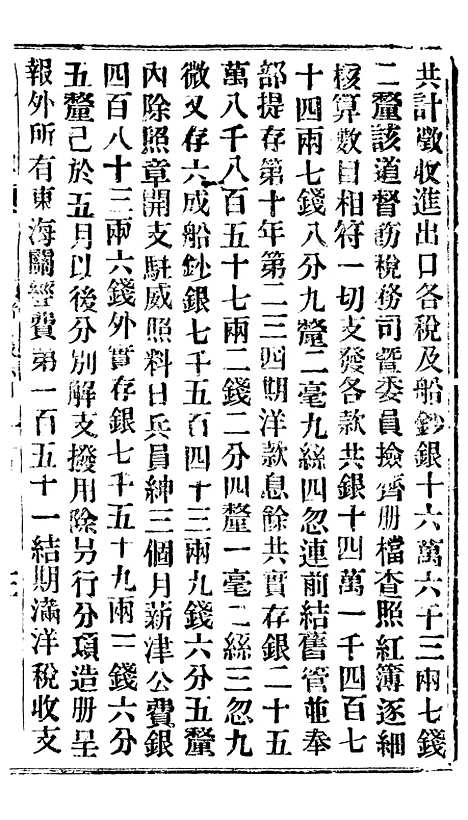 共計徵收進出口各稅及船鈔銀十六萬六千三兩七錢
二釐該道督飭稅務司暨委員撿齊册檔查照紅簿逐細
核算數目相符一切支發各款共銀十四萬一千四百七
十四兩七錢八分九釐二毫九絲四忽連前結舊管並奉
部提存第十年第二三四期洋款息餘共實存銀二十五
萬八千八百五十七兩二錢二分四釐一毫二絲三忽九
微又存六成船鈔銀七千五百四十三兩九錢六分五釐
內除照章開支駐威照料日兵員紳三個月薪津公費銀
四百八十三兩六錢外實存銀七千五十九兩三錢六分
五釐已於五月以後分別解支撥用除另行分項造册呈
報外所有東海關經費第一百五十一結期滿洋稅收支